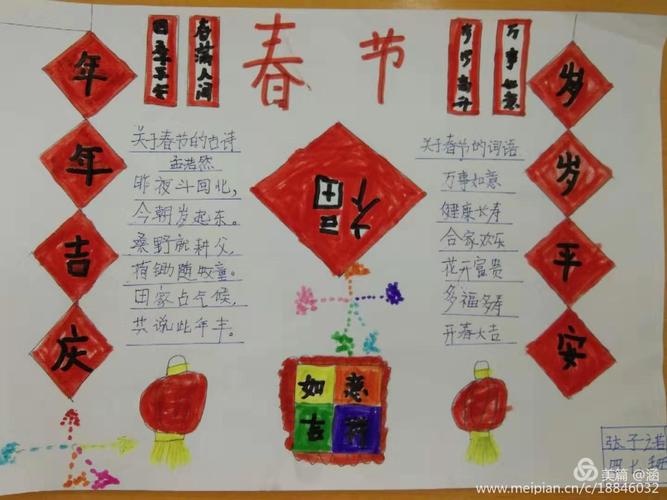 春节
四季平安
春满人间
万事如意
年年吉庆
岁岁平安
福
关于春节的古诗
孟浩然
昨夜斗回北,
今朝岁起东。
桑野就耕父,
荷锄随牧童。
田家占气候,
共说此年丰。
关于春节的词语
万事如意
健康长寿
合家欢乐
花开富贵
多福多寿
开春大吉
如意
吉祥
四七班
美篇 @涵
www.meipian.cn/c/18846032